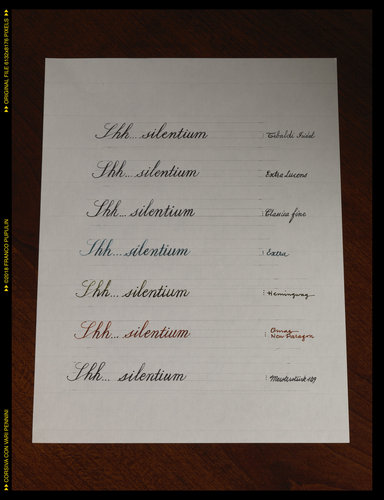 Shh... silentium : Tibaldi
Shh... silentium Extra Lucens
Shh... silentium : Classica fine
Shh... silentium : Extra
Shh... silentium : Hemingway
Shh... silentium : Omas
New Paragon
Shh... silentium : Meisterstück 149
▶▶ ORIGINAL FILE 6132x8176 PIXELS ▶▶
▶▶ ©2018 FRANCO PUPULIN
▶▶ CORSIVA CON VARI PENNINI ▶▶